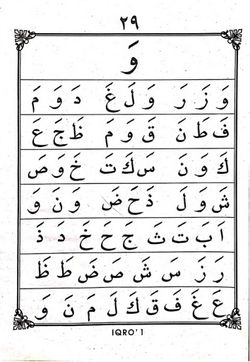 ٢٩
وَ
وَ زَ رَ وَ لَ غَ دَ وَ مَ
فَ طَ نَ قَ وَ مَ ظَ جَ عَ
كَ وَ نَ سَ كَ تَ خَ وَ صَ
شَ وَ لَ ذَ حَ ضَ وَ نَ وَ
اَ بَ تَ ثَ جَ حَ خَ دَ ذَ
رَ زَ سَ شَ صَ ضَ طَ ظَ
عَ غَ فَ قَ كَ لَ مَ نَ وَ
IQRO' 1